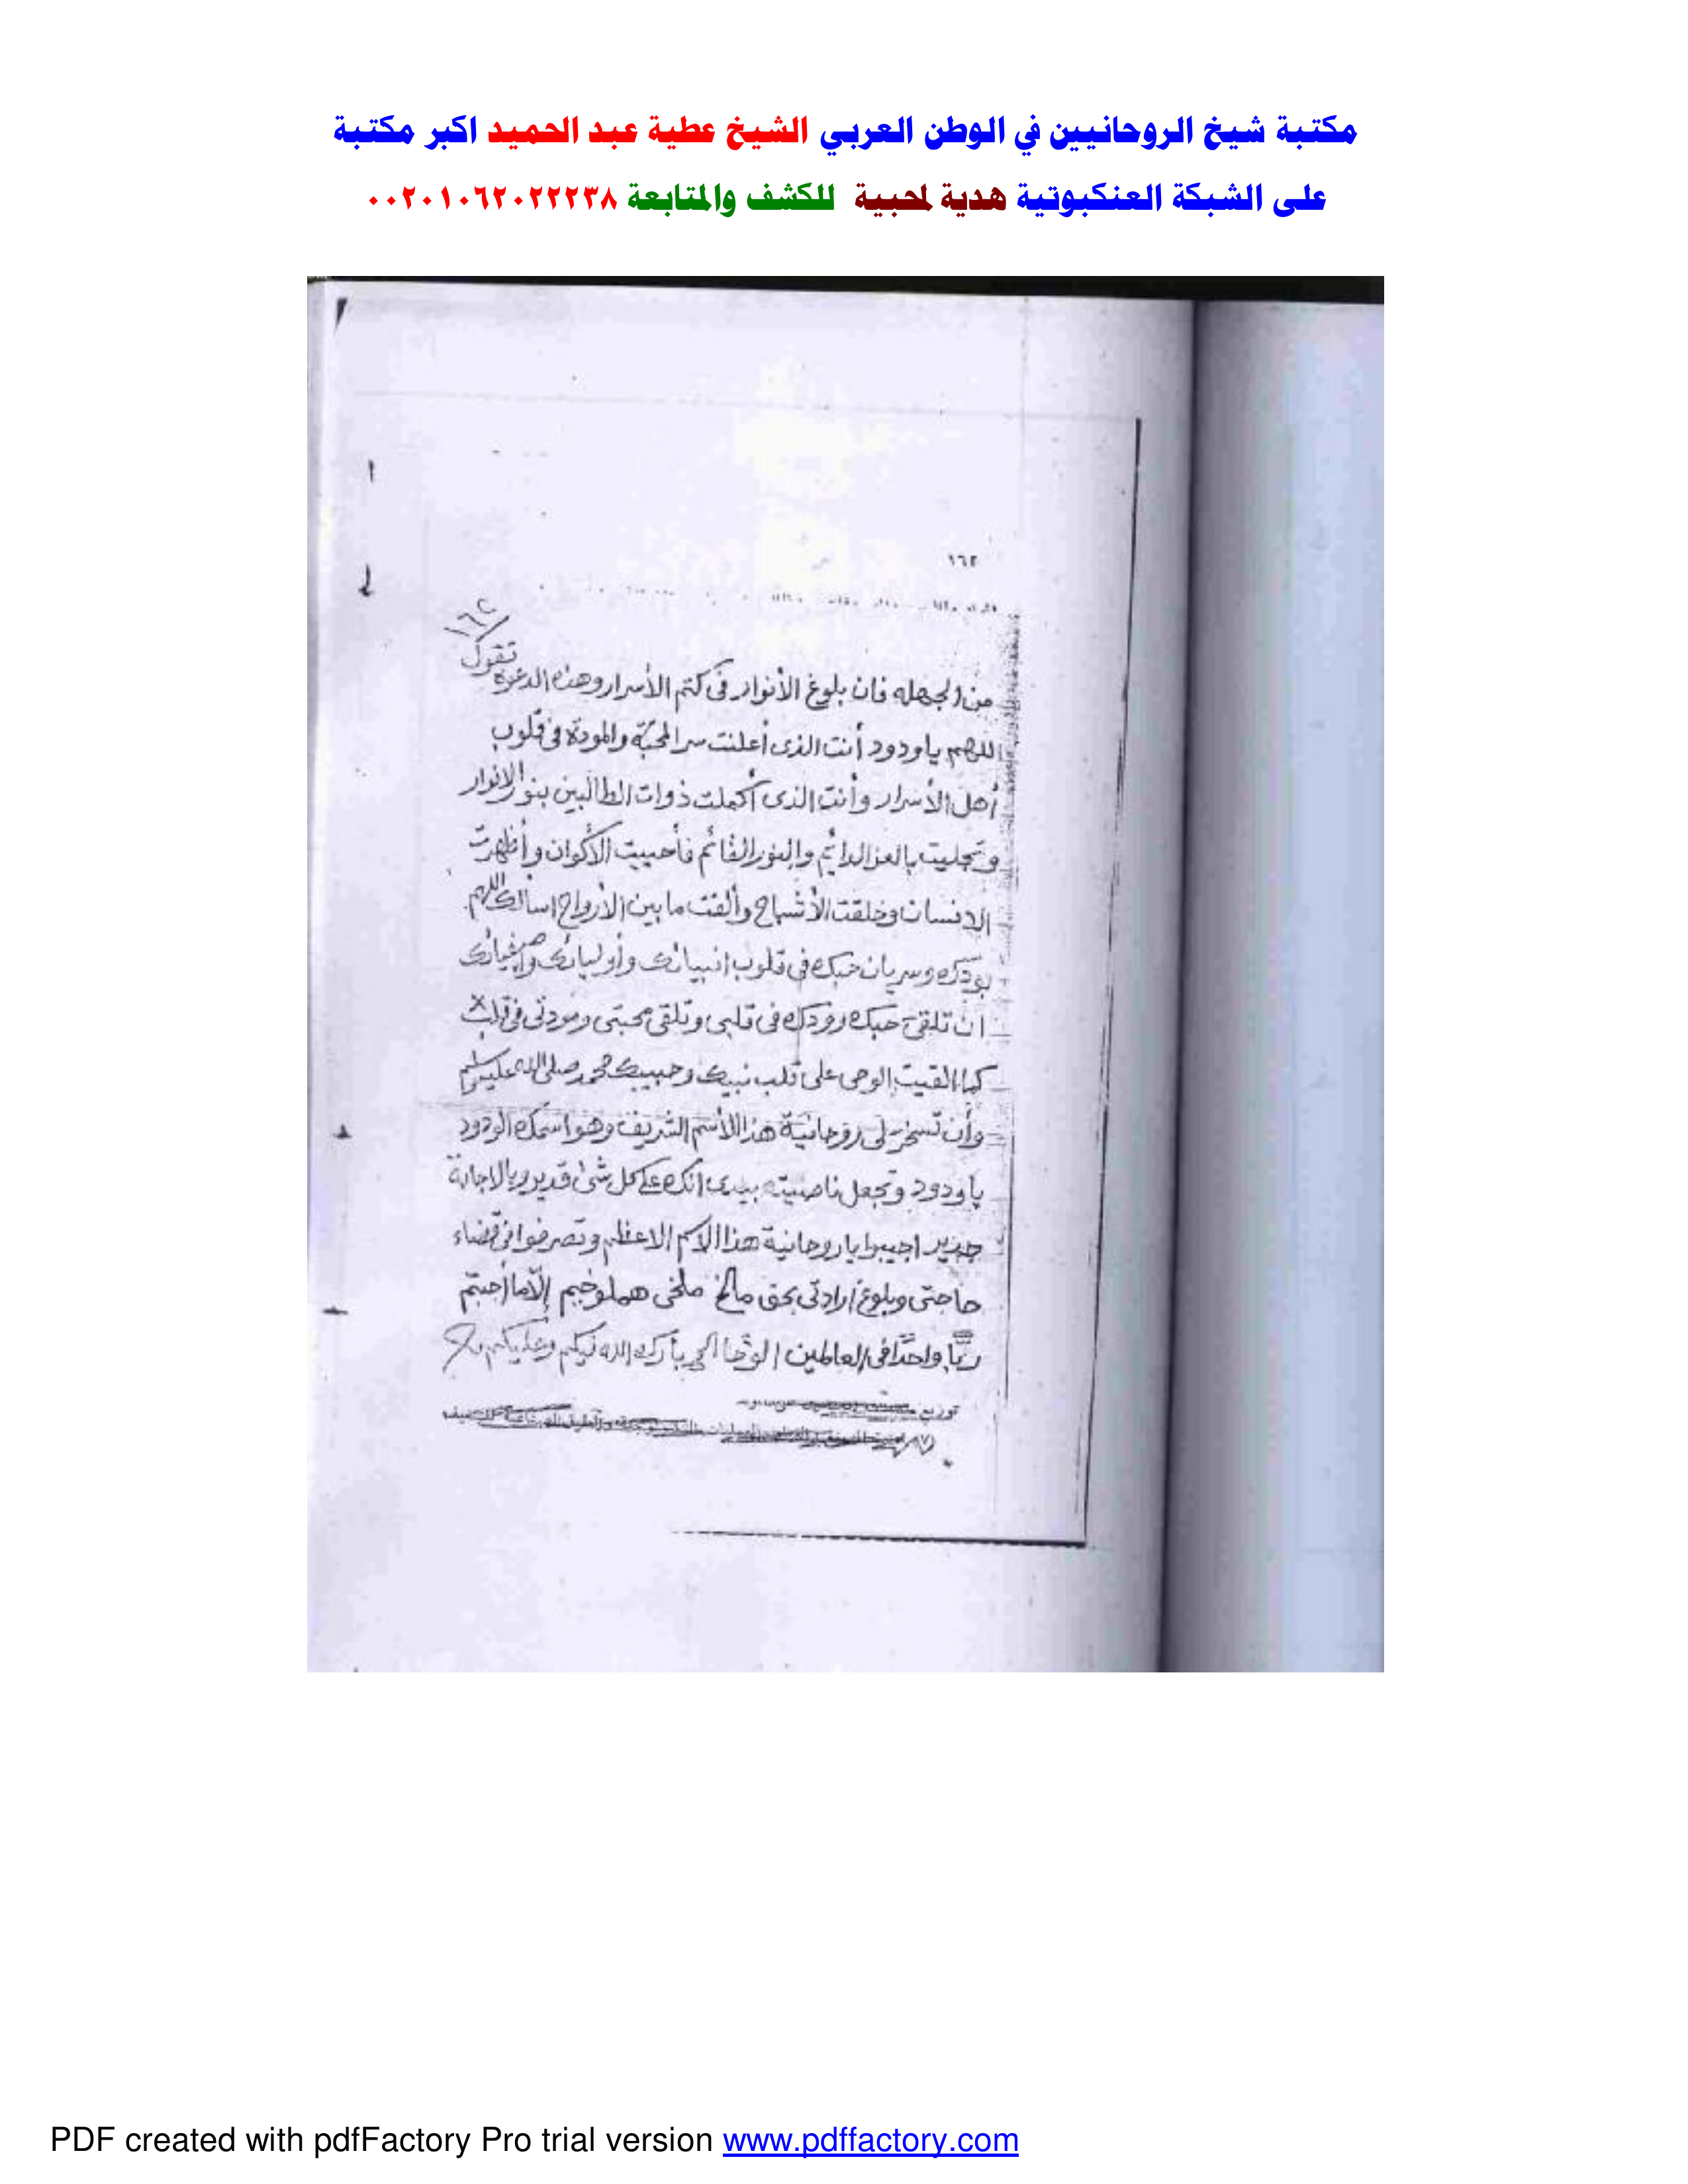 مكتبة شيخ الروحانيين في الوطن العربي الشيخ عطية عبد الحميد اكبر مكتبة
على الشبكة العنكبوتية هدية لمحبية للكشف والمتابعة ٠٠٢٠١٠٦٢٠٢٢٢٣٨
١٦٢
١٦٢
من الجهله فان بلوغ الأنوار فى كتم الأسرار وهذه الدعوة تقول
اللهم ياودود أنت الذى أعلنت سر المحبّة والمودة فى قلوب
أهل الأسرار وأنت الذى أكملت ذوات الطالبين بنور الانوار
وتجليت بالعز الدائم والنور القائم فأحييت الأكوان وأظهرت
الانسان وخلقت الأشباح وألفت ما بين الأرواح اسالك اللهم
بودك وسريان حبك فى قلوب انبيائك وأوليائك وأصفيائك
ان تلقى حبك وودك فى قلبى وتلقى محبتى ومودتى فى قلب
كما القيت الوحى على قلب نبيك وحبيبك محمد صلى الله عليه وسلم
وأن تسخر لى روحانية هذا الأسم الشريف وهو اسمك الودود
ياودود وتجعل ناصيته بيدى انك على كل شئ قدير وبالاجابة
جدير اجيبوا ياروحانية هذا الاسم الاعظم وتصرفوا فى قضاء
حاجتى وبلوغ ارادتى بحق مالخ ملخى هملوخيم إلّا ما أجبتم
ربًّا واحدًا فى العالمين الوحا بارك الله فيكم وعليكم
توزيع